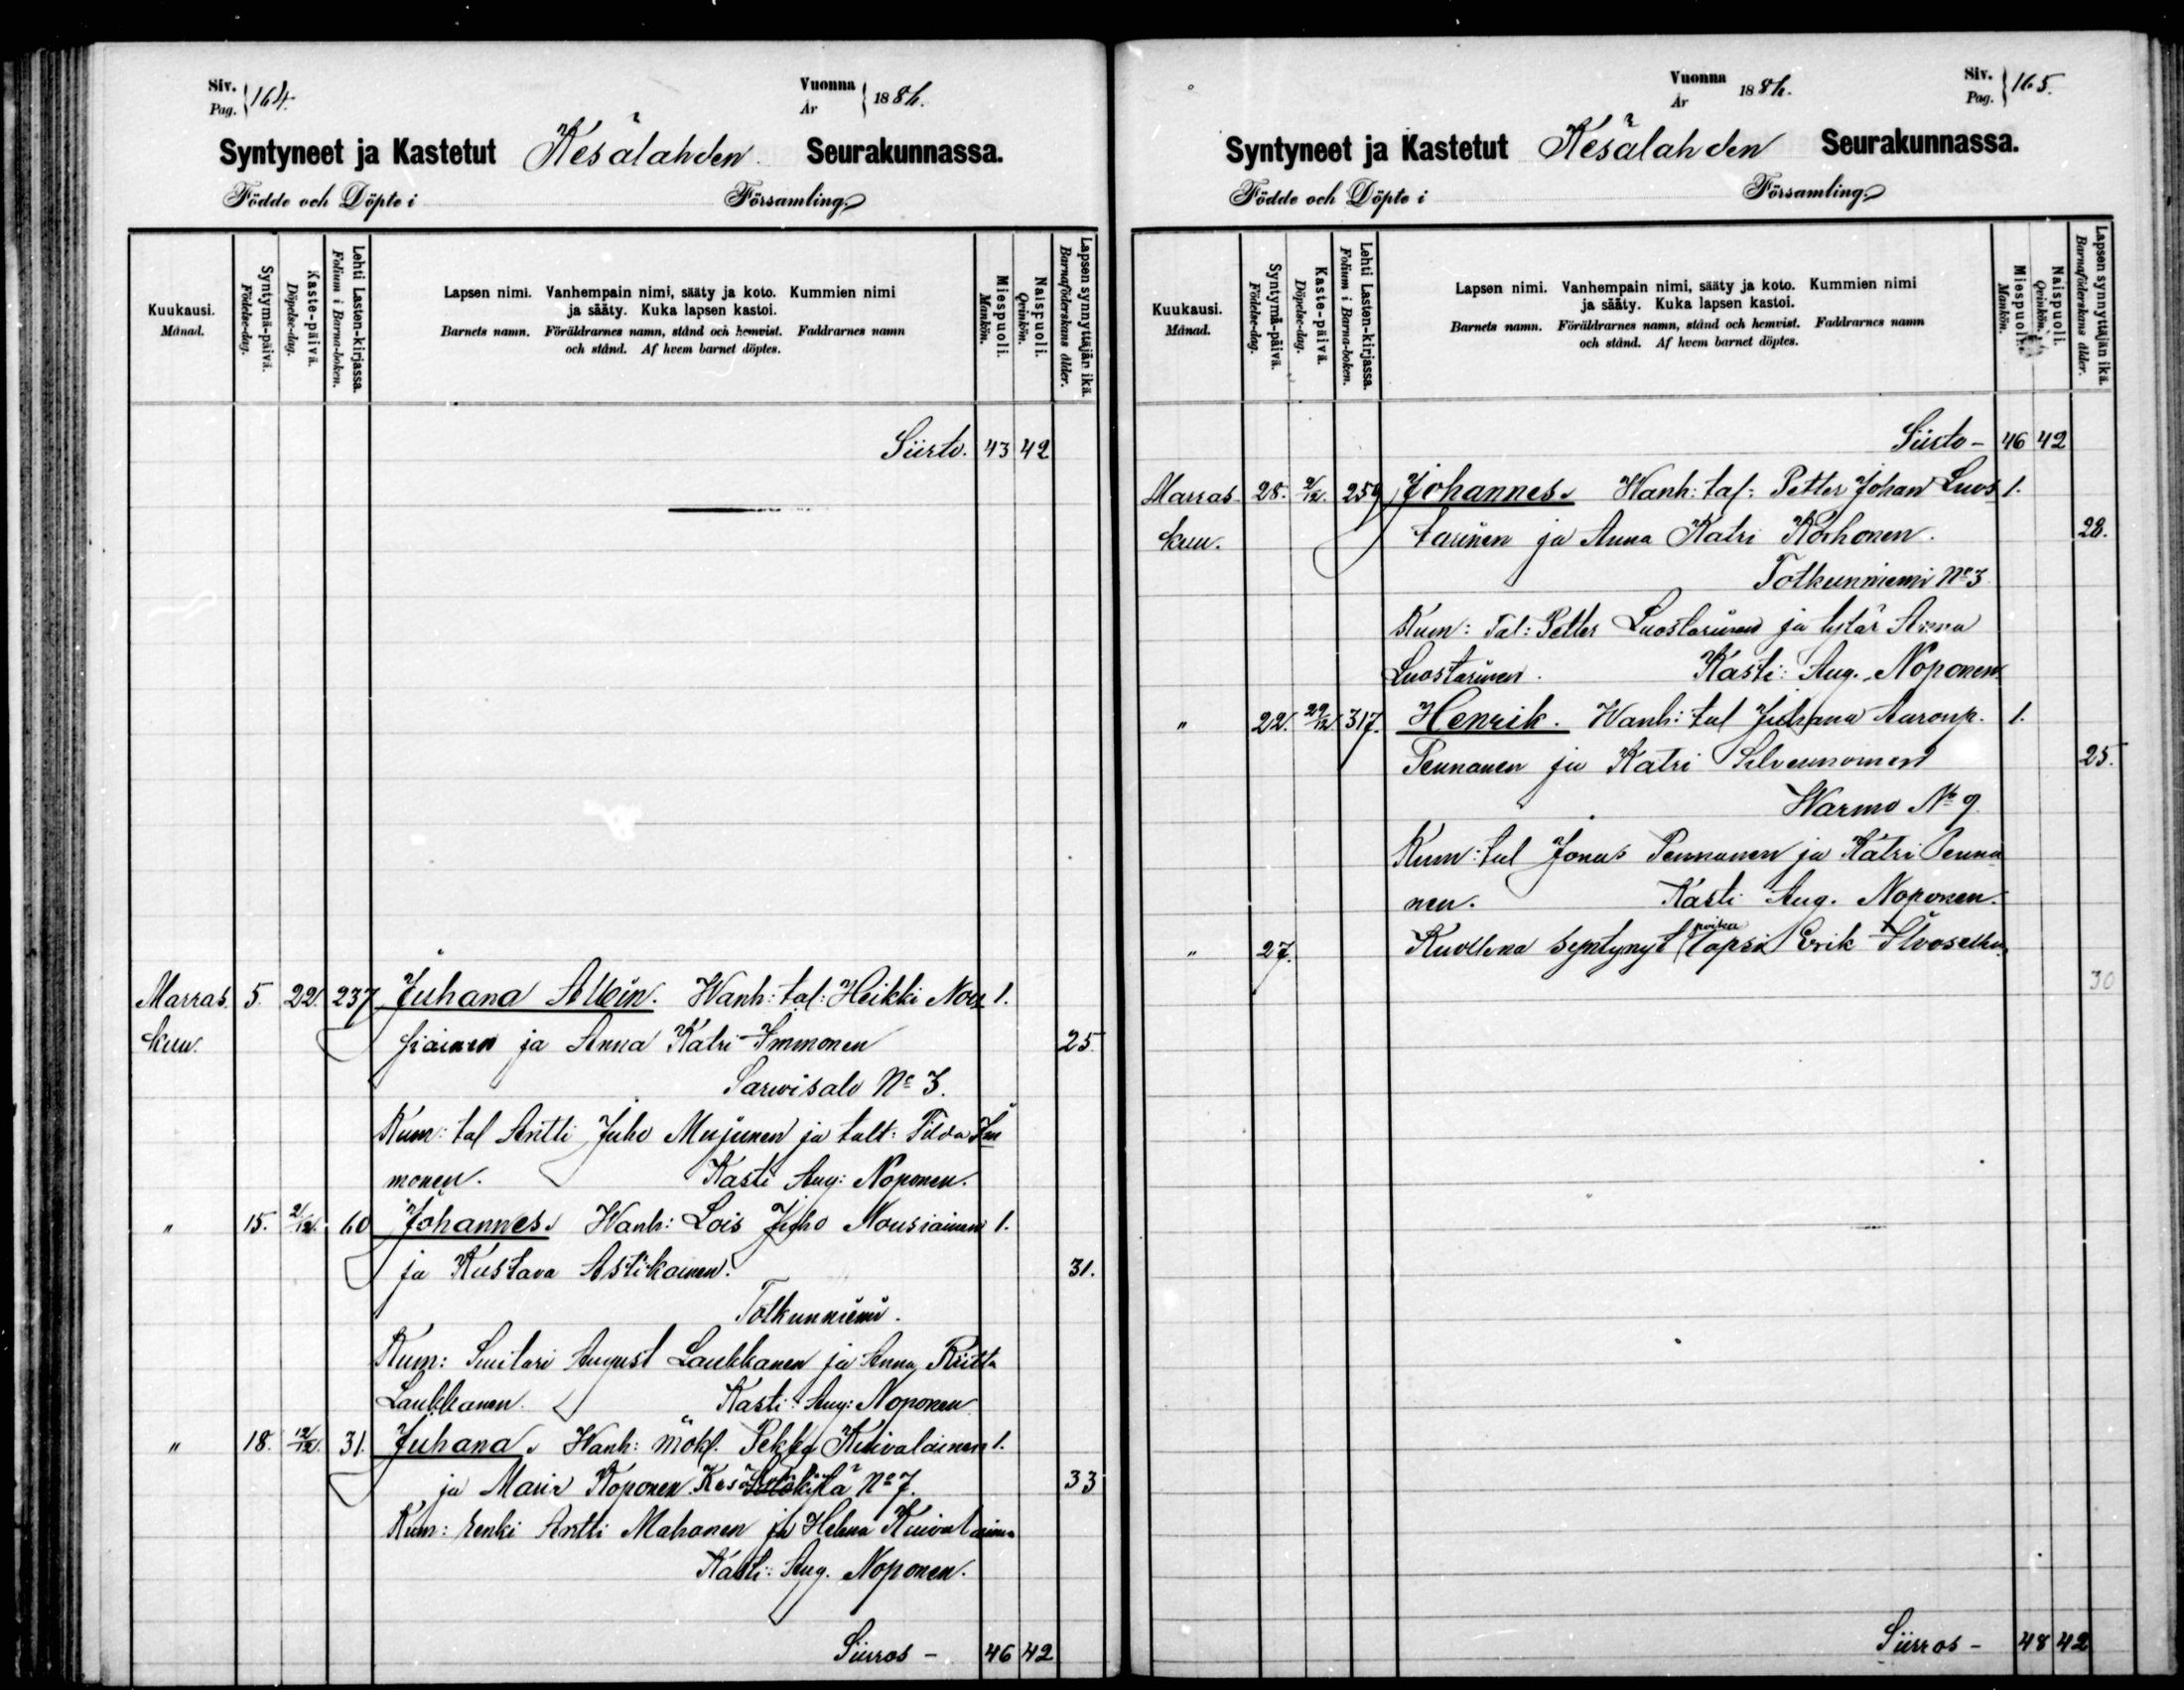 Siv. Pag. 164.
Vuonna År 1886.
Syntyneet ja Kastetut Kesälahden Seurakunnassa.
Födde och Döpte i Församling.
Kuukausi. Månad.
Syntymä-päivä. Födelse-dag.
Kaste-päivä. Döpelse-dag.
Lehti Lasten-kirjassa. Folium i Barna-boken.
Lapsen nimi. Vanhempain nimi, sääty ja koto. Kummien nimi
ja sääty. Kuka lapsen kastoi.
Barnets namn. Föräldrarnes namn, stånd och hemvist. Faddrarnes namn
och stånd. Af hvem barnet döptes.
Miespuoli. Mankön.
Naispuoli. Qvinkön.
Lapsen synnyttäjän ikä. Barnaföderskans ålder.
Siirto. 43 42
Marras 5. 22. 237 Juhana Albin. Wanh: tal: Heikki Nou 1.
kuu. siainen ja Anna Katri Immonen 25.
Sarvisalo No 3.
Kum: tal Antti Juho Mujunen ja talt: Tilda Im
monen. Kasti Aug: Noponen.
" 15. 2/12. 60 Johannes. Wanh: Lois Juho Nousiainen 1.
ja Kustava Astikainen. 31.
Totkunniemi.
Kum: Suutari August Laukkanen ja Anna Riitta
Laukkanen. Kasti: Aug: Noponen
" 18. 12/12. 31. Juhana. Wanh: mökl. Pekka Kuivalainen 1.
ja Maria Koponen. No 7. 33
Kum: renki Antti Mahonen ja Helena Kuivalainen
Kasti: Aug. Noponen.
Siirros - 46 42
Vuonna År 1886.
Siv. Pag. 165.
Syntyneet ja Kastetut Kesälahden Seurakunnassa.
Födde och Döpte i Församling.
Kuukausi. Månad.
Syntymä-päivä. Födelse-dag.
Kaste-päivä. Döpelse-dag.
Lehti Lasten-kirjassa. Folium i Barna-boken.
Lapsen nimi. Vanhempain nimi, sääty ja koto. Kummien nimi
ja sääty. Kuka lapsen kastoi.
Barnets namn. Föräldrarnes namn, stånd och hemvist. Faddrarnes namn
och stånd. Af hvem barnet döptes.
Miespuoli. Mankön.
Naispuoli. Qvinkön.
Lapsen synnyttäjän ikä. Barnaföderskans ålder.
Siirto - 46 42
Marras 28. 2/12. 259 Johannes. Wanh: tal: Petter Johan Luos 1.
kuu. tarinen ja Anna Katri Korhonen. 28.
Totkunniemi No 3
Kum: Tal: Petter Luostarinen ja tytär Anna
Luostarinen. Kasti: Aug. Noponen
" 22. 29/12. 317. Henrik. Wanh: tal Juhana Aaronp. 1.
Pennanen ja Katri Silvennoinen 25.
Warmo No 9
Kum: tal Jonas Pennanen ja Katri Penna
nen. Kasti Aug. Noponen.
" 27. Kuollena syntynyt poika lapsi Erik
30
Siirros - 48 42